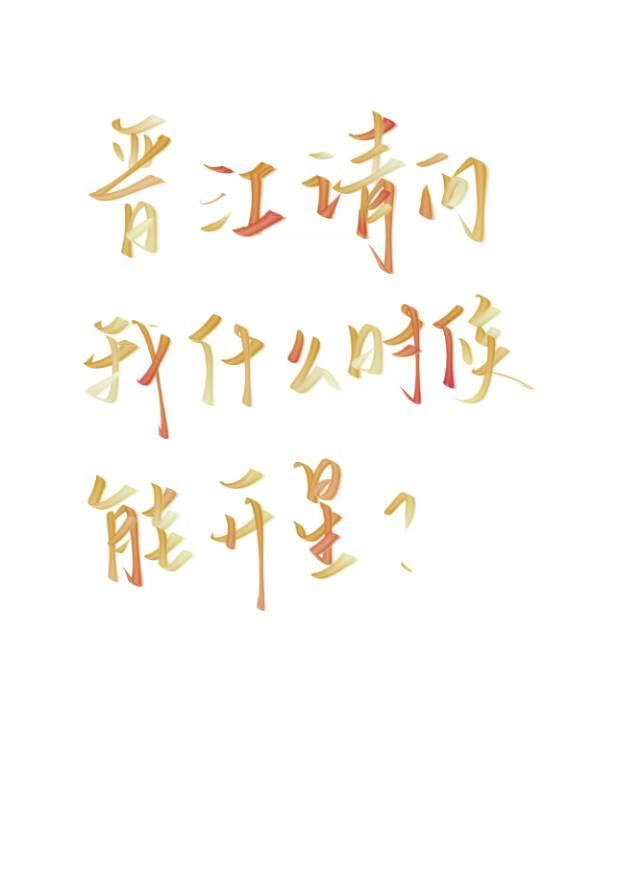 晋江请问
我什么时候
能开星？